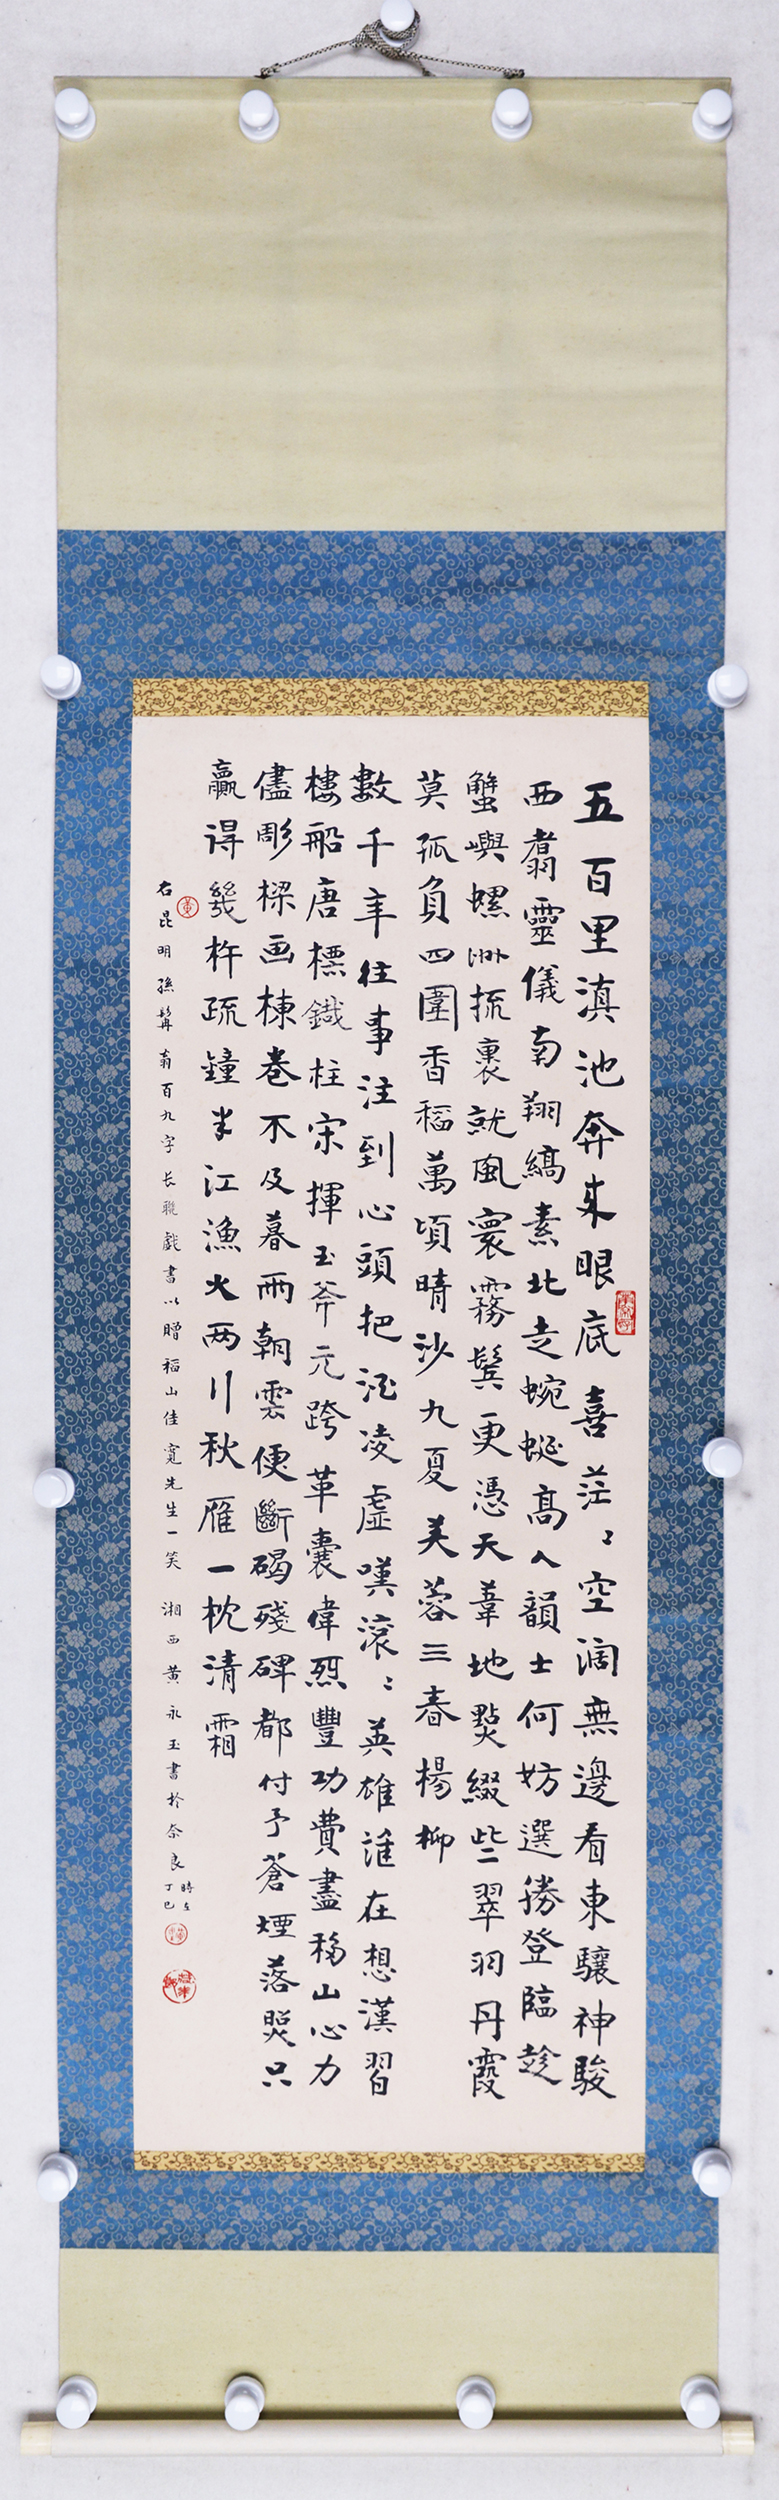 五百里滇池奔來眼底喜茫〻空阔無邊看東驤神駿
西翥靈儀南翔縞素北走蜿蜒高人韻士何妨選勝登臨趁
蟹嶼螺洲梳裹就風寰霧鬓更憑天葦地㸃綴些翠羽丹霞
莫孤負四圍香稻萬頃晴沙九夏芙蓉三春楊柳
數千年往事注到心頭把酒凌虛嘆滚〻英雄誰在想漢習
樓船唐標鐵柱宋揮玉斧元跨革囊偉烈豐功費盡移山心力
儘彫樑画棟卷不及暮雨朝雲便斷碣殘碑都付予蒼煙落照只
贏得幾杵疏鐘半江漁火两川秋雁一枕清霜
右昆明孫髯翁百九字长聯戲書以贈稻山佳寬先生一笑 湘西黄永玉書於奈良時在丁巳
黄